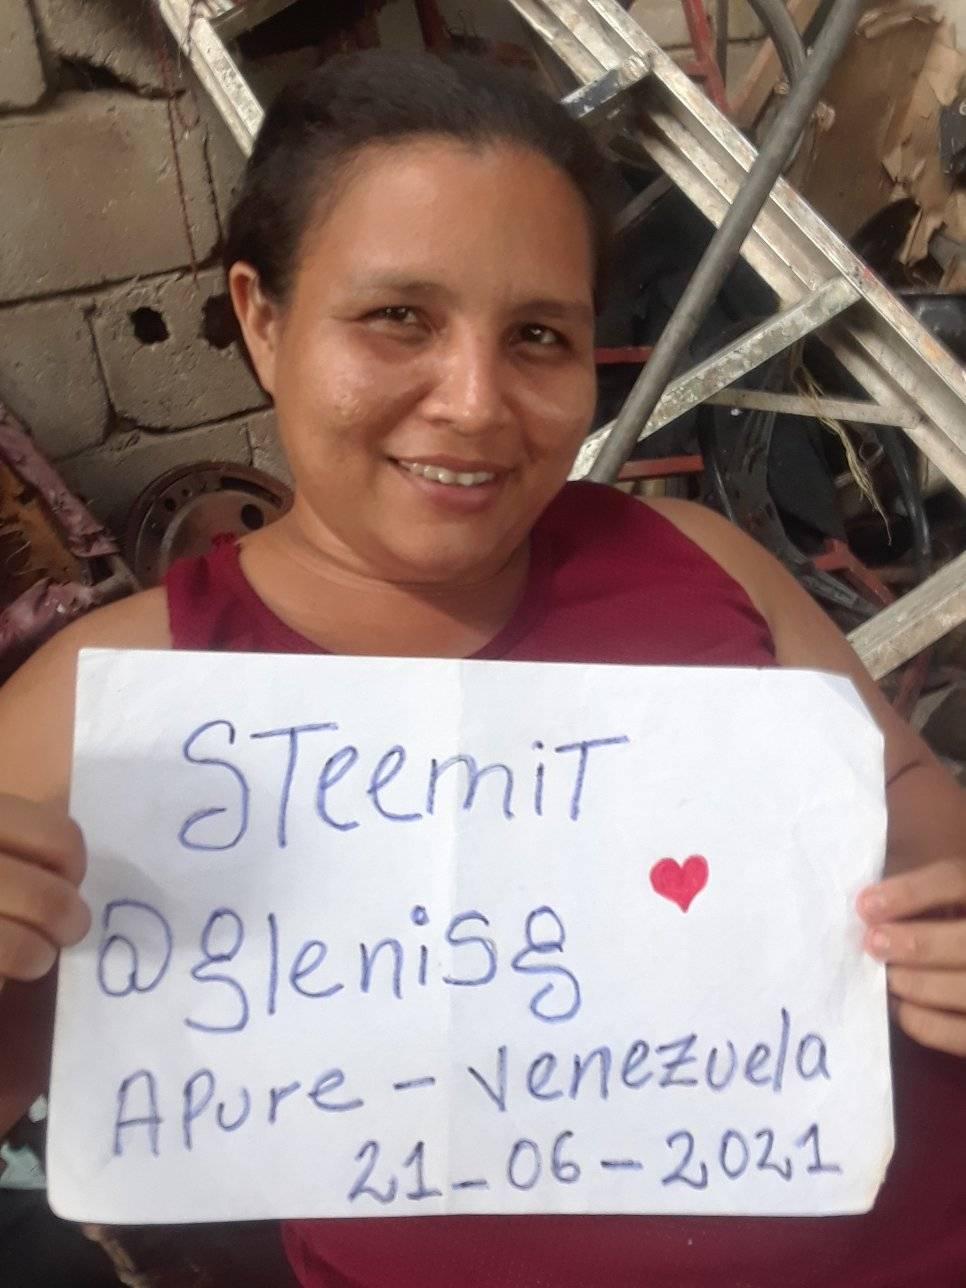 STeemiT
@glenisg
APure - Venezuela
21-06-2021